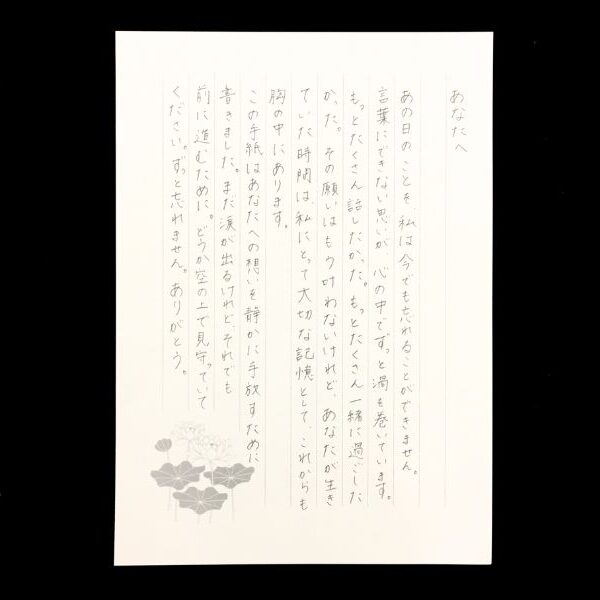 あなたへ
あの日のことを私は今でも忘れることができません。
言葉にできない思いが、心の中でずっと渦を巻いています。
もっとたくさん話したかった。もっとたくさん一緒に過ごした
かった。その願いはもう叶わないけれど、あなたが生き
ていた時間は、私にとって大切な記憶として、これからも
胸の中にあります。
この手紙はあなたへの想いを静かに手放すために
書きました。まだ涙が出るけれど、それでも
前に進むために。どうか空の上で見守っていて
ください。ずっと忘れません。ありがとう。